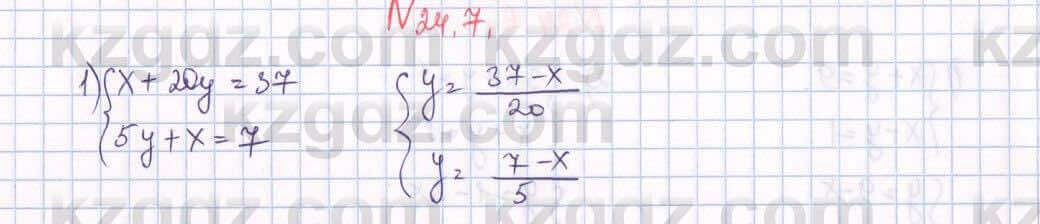 N24.7.
1) { x + 20y = 37 { y = (37 - x)/20
{ 5y + x = 7 { y = (7 - x)/5
kzgdz.com kzgdz.com kz
kzgdz.com
kzgdz.com kzgdz.com kz